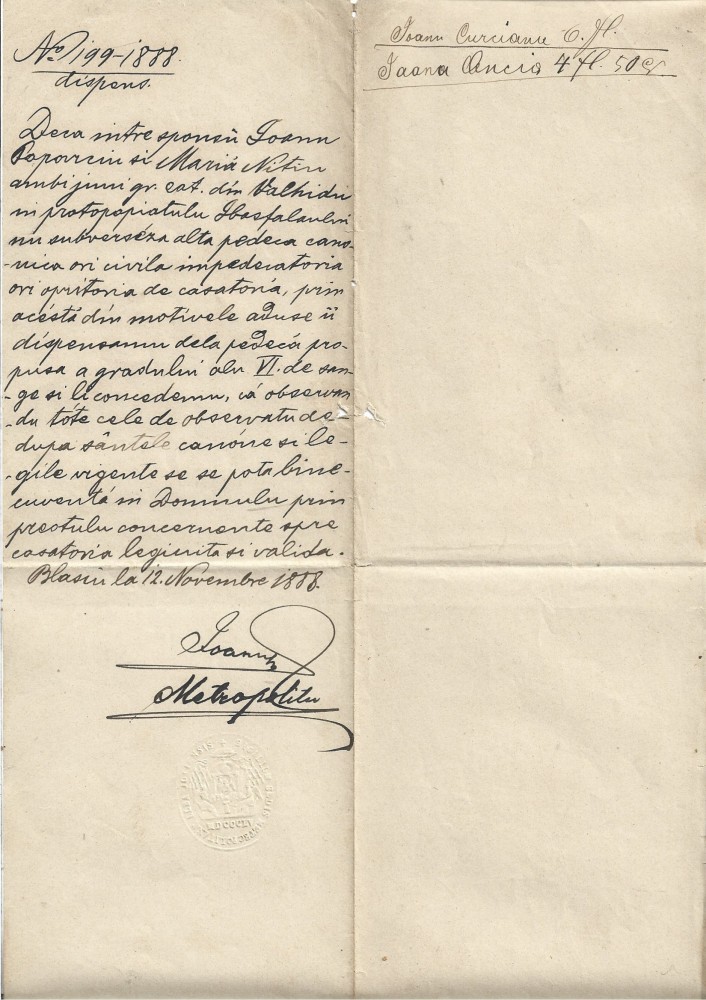 No 199-1888.
dispens.
Deca intre sponsii Ioanu
Popoviciu si Mariá Nitiu
ambi juni gr. cat. din Valhidu
in protopopiatulu Ibasfalaului
nu subverséza alta pedeca cano-
-nica ori civila impedecatoria
ori opritoria de casatoria, prin
acésta din motivele aduse ii
dispensamu dela pedecá pro-
pusa a gradului alu VI. de san-
-ge si li concedemu, cá observan
-du tóte cele de observatu de-
-dupa sântele canóne si le-
-gile vigente se se pota bine-
-cuventá in Domnulu prin
preotulu concernente spre
casatoria legiuita si valida.
Blasiu la 12. Novembre 1888.
Ioanu
Metropolitu
MDCCCLV
Ioanu Curcianu 6. fl.
Ioana Oncia 4 fl. 50 cr